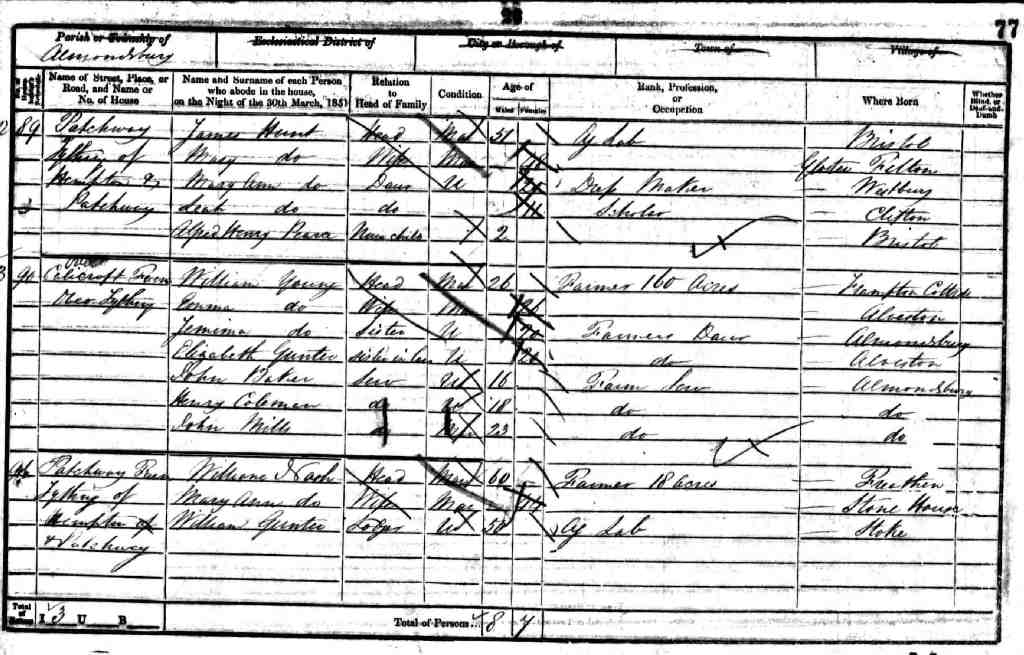 28
77
Parish or Township of Ecclesiastical District of City or Borough of Town of Village of
Almondsbury
Name of Street, Place, or Road, and Name or No. of House Name and Surname of each Person who abode in the house, on the Night of the 30th March, 1851 Relation to Head of Family Condition Age of Males Females Rank, Profession, or Occupation Where Born Whether Blind, or Deaf-and-Dumb
89 Patchway James Hunt Head Mar 51 Ag Lab Bristol
Tything of Mary do Wife Mar Filton
Hempton & Mary Ann do Daur U Maker Westbury
Patchway Leah do do Scholar Clifton
Alfred Henry Nurse child 2 Bristol
90 Farm William Young Head Mar 26 Farmer 160 Acres Frampton
Over Tything Emma do Wife Mar 26 Alveston
Jemima do Sister U 20 Farmers Daur Almondsbury
Elizabeth Gunter Sister in Law U 21 do Alveston
John Baker Serv U 16 Farm Serv Almondsbury
Henry Coleman do U 18 do do
John Mills do U 23 do do
Patchway Farm William Nash Head Mar 60 Farmer 18 acres
Tything of Mary Ann do Wife Mar Stone House
Hempton William Gunter Lodger U 50 Ag Lab Stoke
& Patchway
Total of Houses I 3 U B Total of Persons 8 7